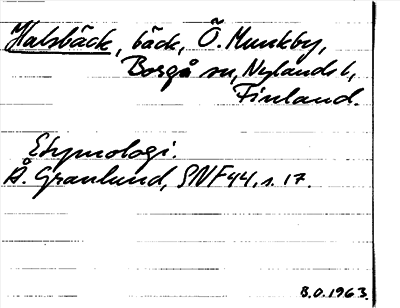 Halsbäck, bäck, Ö. Munkby,
Borgå sn, Nylands l,
Finland.
Etymologi.
Å. Granlund, SNF 44, s. 17.
B.O. 1963.